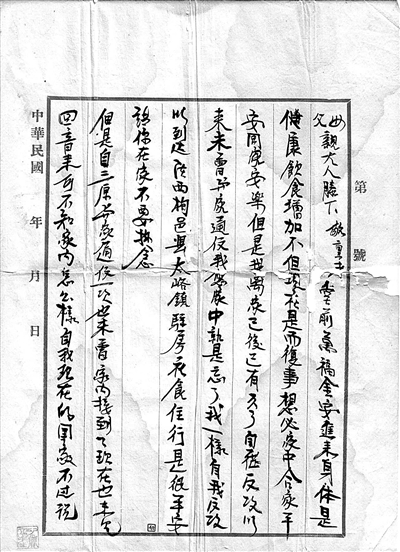 第 號
父母親大人膝下敬稟者 堂前萬福金安進来身体是
健康飲食增加不但現在是 復事想必家中合家平
安闔家安樂但是我离家已後已有 月自從反攻以
来未曾與家通信我 家中就是忘了我一樣自我反攻
以到達陝西栒邑縣太峪鎮駐房衣食住行是很平安
請你在家不要掛念
但是自三原與家通信一次也未曾家內接到了現在也未見
回音来可不知家內怎么樣自我現在的國家不过説
中華民國 年 月 日